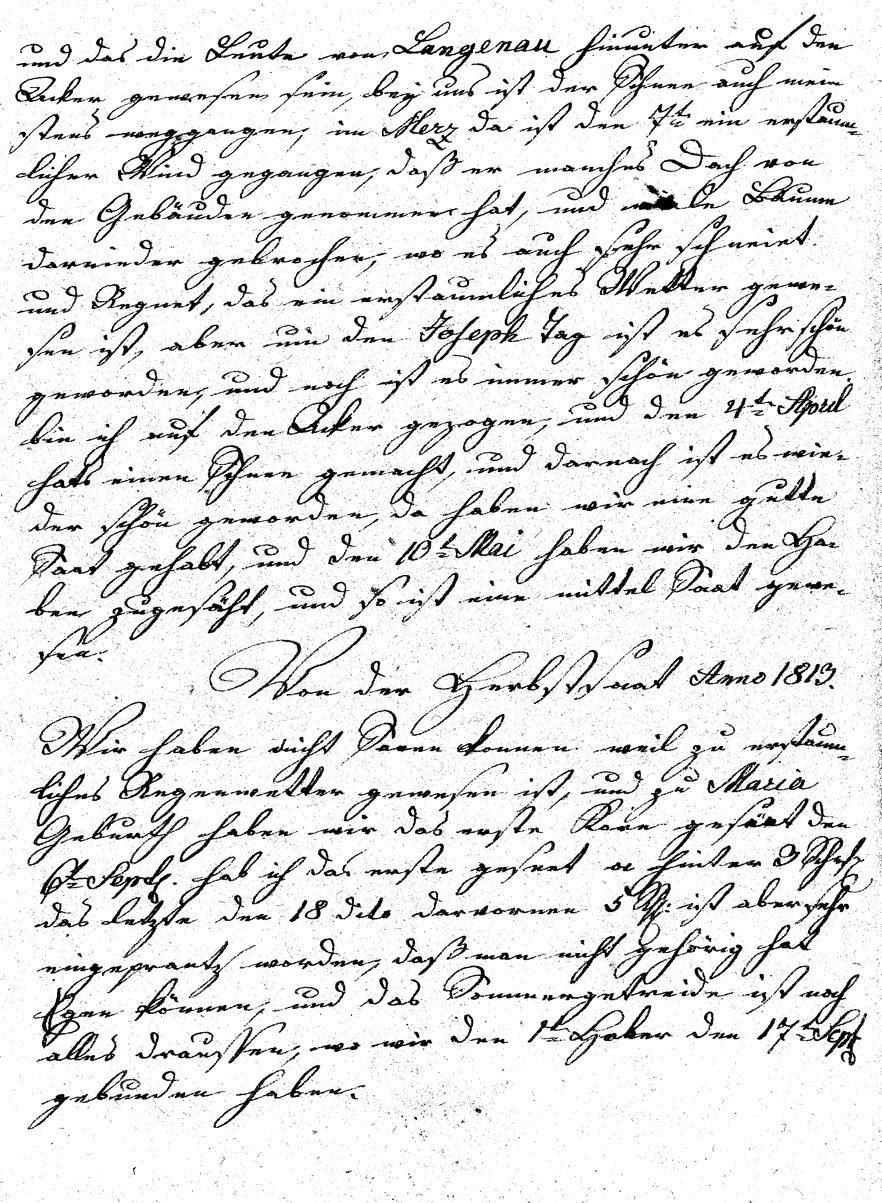 und das die Leute von Langenau hinunter auf den
Acker gewesen sein, bey uns ist der Schnee auch mein
stens weggangen, im Merz da ist den 7t ein erstaun-
licher Wind gegangen, daß er manches Dach von
den Gebäuden genommen hat, und viele Bäume
darnieder gebrochen, wo es auch sehr schneiet
und Regnet, das ein erstaunliches Wetter gewe-
sen ist, aber um den Joseph Tag ist es sehr schön
geworden, und noch ist es immer schön geworden
bin ich auf den Acker gezogen, und den 4t April
hats einen Schnee gemacht, und darnach ist es wie-
der schön geworden, da haben wir eine gutte
Saat gehabt, und den 10t Mai haben wir den Ha-
ber zugesäht, und so ist eine mittel Saat gewe-
sen.
Von der Herbstsaat Anno 1813.
Wir haben nicht Säen konnen weil zu erstaun-
liches Regenwetter gewesen ist, und zu Maria
Geburth haben wir das erste Korn gesäet den
6t Sept. hab ich das erste gesäet a hinter 3 Schfl
das letzte den 18 dito darvornen 5 ist aber sehr
eingeprantz worden, daß man nicht gehörig hat
Egen können, und das Sommergetreide ist noch
alles draussen, wo wir den 1t Haber den 17t Sept
gebunden haben.